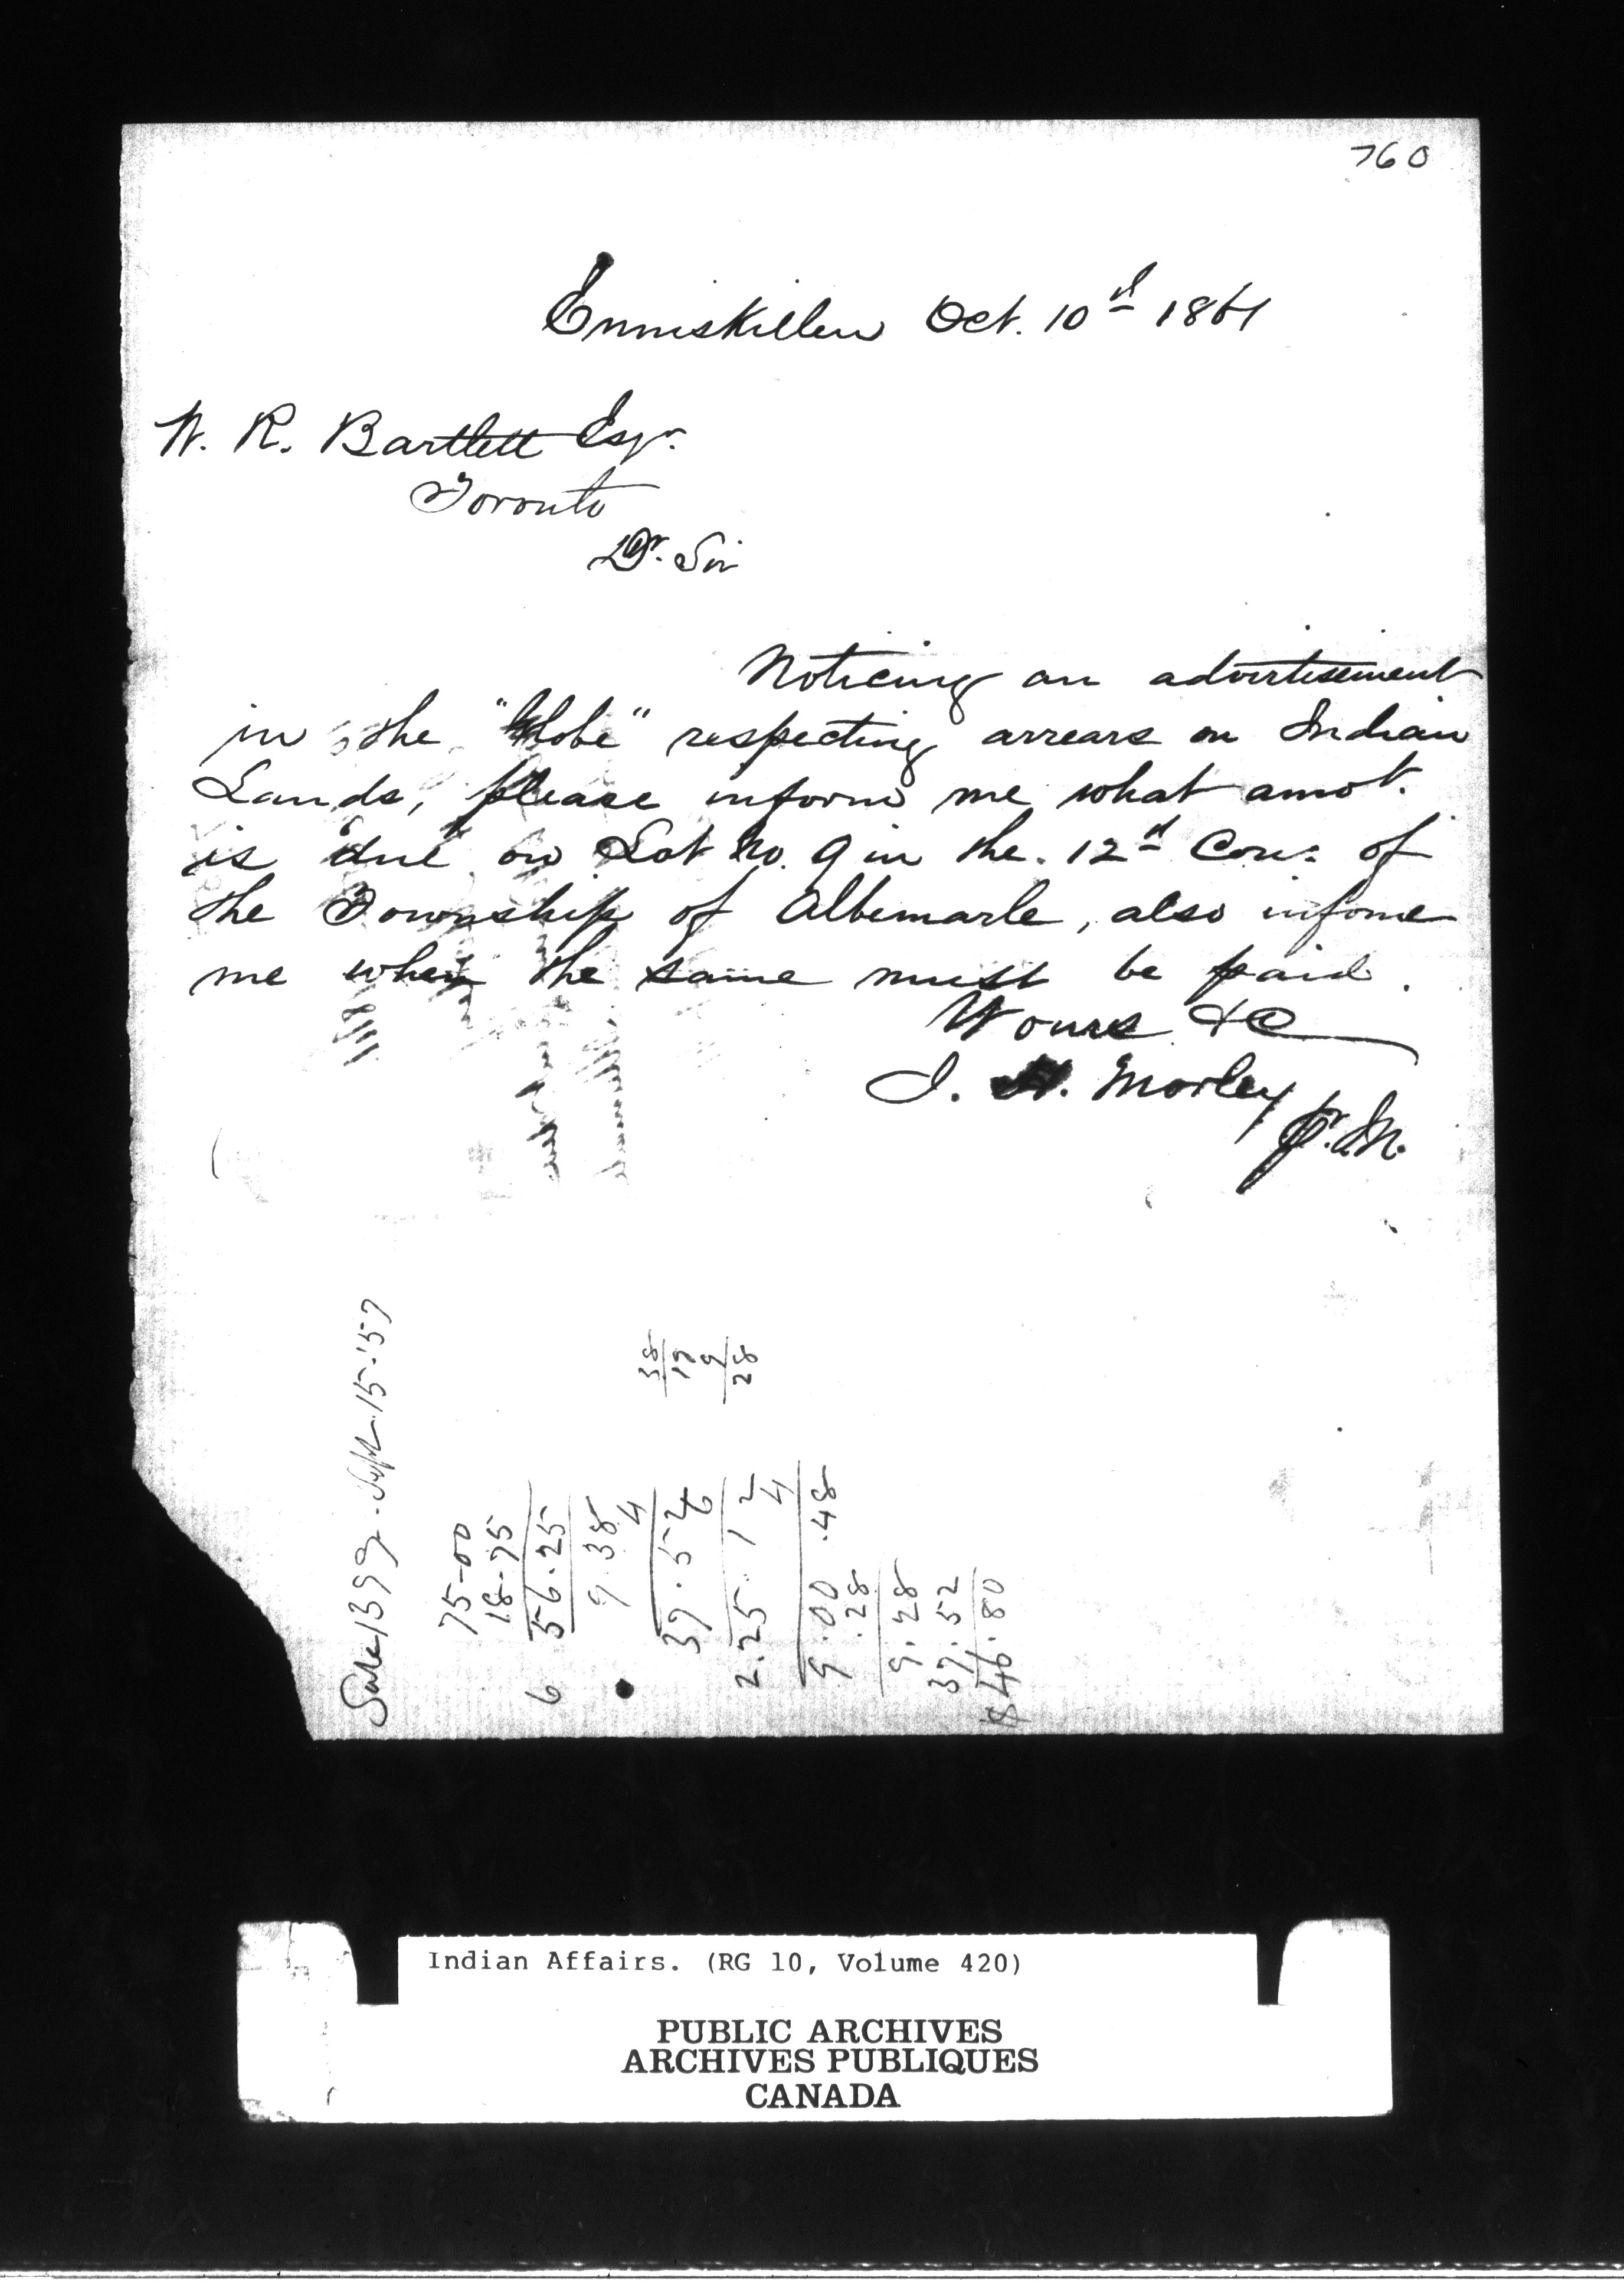 760
Enniskillen Oct. 10th 1861
W. R. Bartlett Esqr.
Toronto
Dr. Sir
Noticing an advertisement
in the "Globe" respecting arrears on Indian
Lands, please inform me what amot.
is due on Lot No. 9 in the 12th Con: of
the Township of Albemarle, also informe
me when the same must be paid.
Yours &C
J. H. Morley
Sale 1399 - Sept. 15 - '57
75-00
18-75
6 56.25
9.38
4
37.52
6
2.25.12
4
9.00.48
.28
9.28
37.52
$46.80
38
19
9
28
Indian Affairs. (RG 10, Volume 420)
PUBLIC ARCHIVES
ARCHIVES PUBLIQUES
CANADA